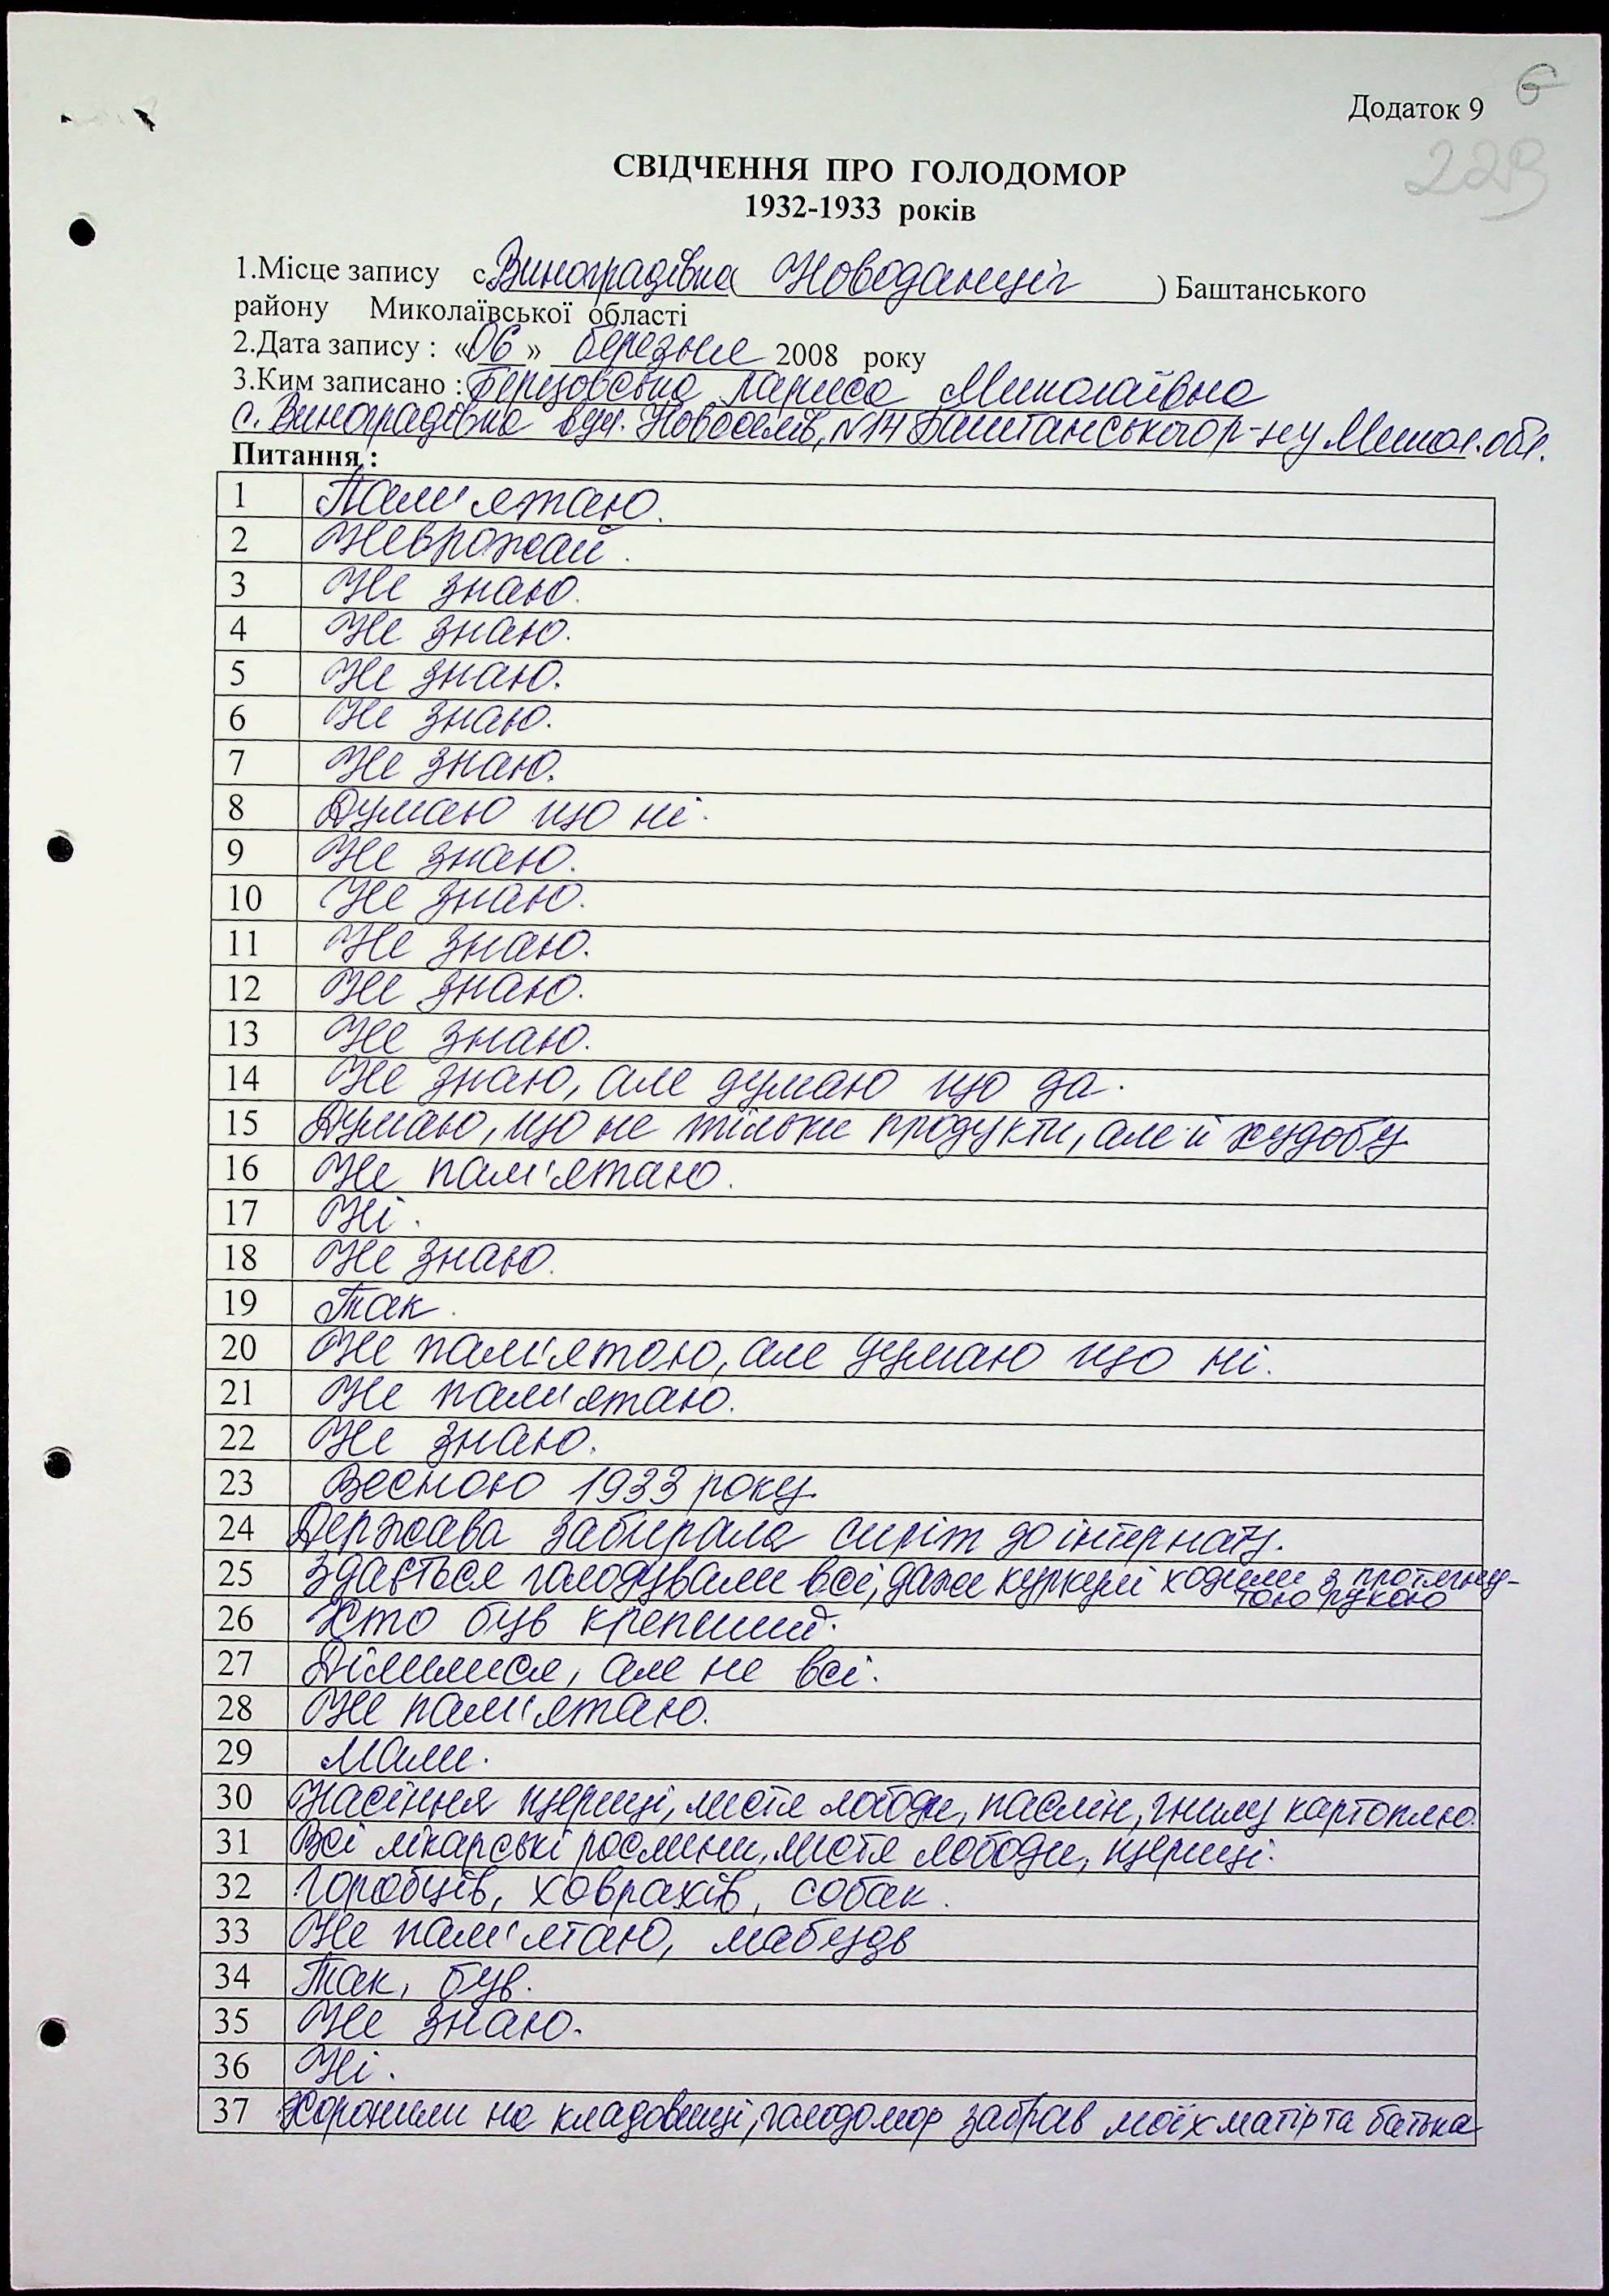 Додаток 9 6
229
СВІДЧЕННЯ ПРО ГОЛОДОМОР
1932-1933 років
1.Місце запису с.Виноградівка ( Новоданціг ) Баштанського
району Миколаївської області
2.Дата запису : «06» березня 2008 року
3.Ким записано : Березовська Лариса Миколаївна
с. Виноградівка вул. Новоселів, №14 Баштанського р-ну Микол. обл.
Питання :
1 Пам'ятаю.
2 Неврожай.
3 Не знаю.
4 Не знаю.
5 Не знаю.
6 Не знаю.
7 Не знаю.
8 Думаю що ні.
9 Не знаю.
10 Не знаю.
11 Не знаю.
12 Не знаю.
13 Не знаю.
14 Не знаю, але думаю що да.
15 Думаю, що не тільки продукти, але й худобу
16 Не пам'ятаю.
17 Ні.
18 Не знаю.
19 Так.
20 Не пам'ятою, але думаю що ні.
21 Не пам'ятаю.
22 Не знаю.
23 Весною 1933 року.
24 Держава забирала сиріт до інтернату.
25 Здається голодували всі, даже куркулі ходили з протягну-
тою рукою
26 Хто був крепший.
27 Ділилися, але не всі.
28 Не пам'ятаю.
29 Мали.
30 Насіння щериці, листя лободи, паслін, гнилу картоплю.
31 Всі лікарські рослини, листя лободи, щериці.
32 Горобців, ховрахів, собак.
33 Не пам'ятаю, мабудь
34 Так, був.
35 Не знаю.
36 Ні.
37 Хоронили на кладовищі, голодомор забрав моїх матір та батька